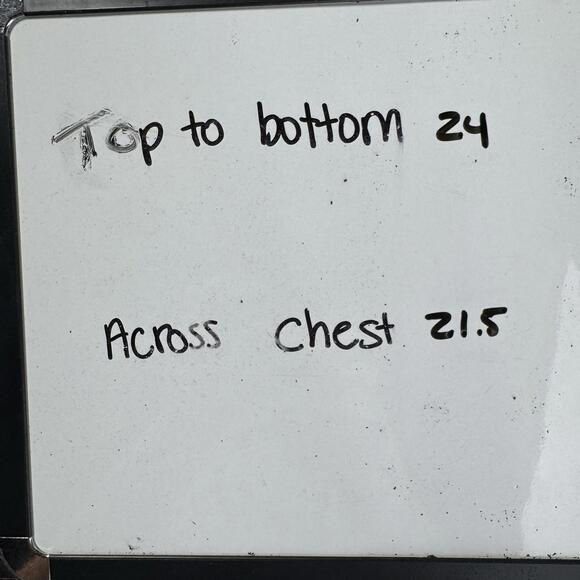 Top to bottom 24
Across chest 21.5